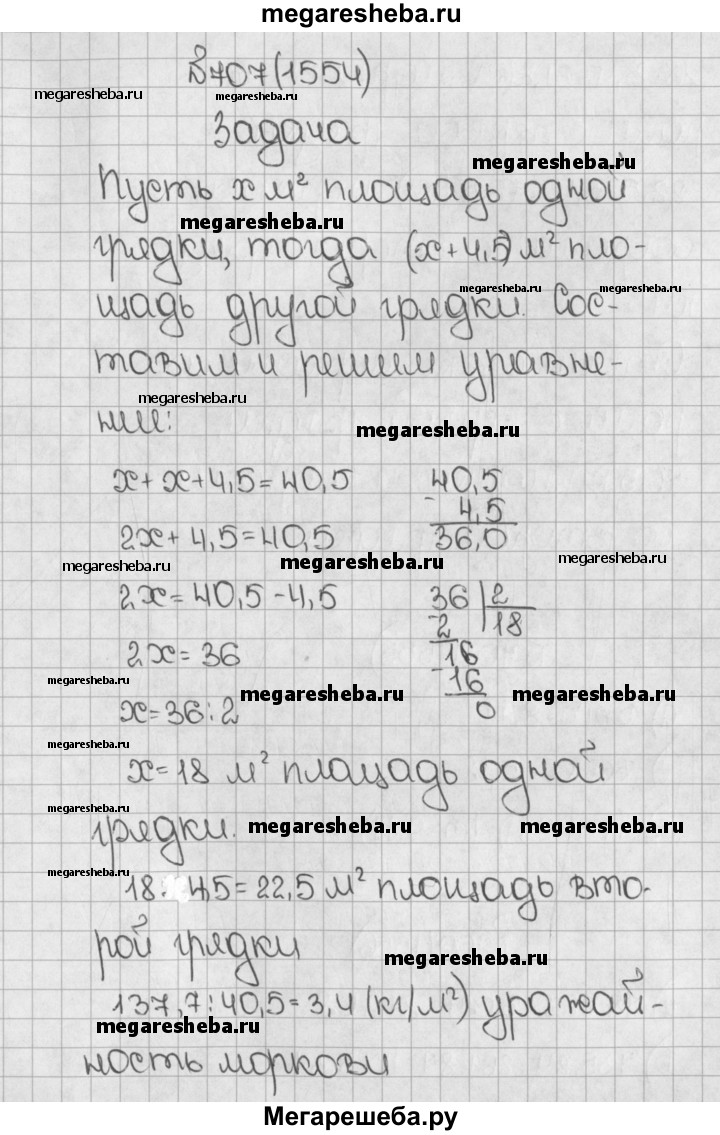 megaresheba.ru
№707(1554)
megaresheba.ru
megaresheba.ru
Задача
megaresheba.ru
Пусть x м² площадь одной
megaresheba.ru
грядки, тогда (x+4,5) м² пло-
megaresheba.ru
megaresheba.ru
щадь другой грядки. Сос-
тавим и решим уравне-
megaresheba.ru
ние:
megaresheba.ru
x+x+4,5=40,5 40,5
- 4,5
2x+4,5=40,5 36,0
megaresheba.ru
megaresheba.ru
megaresheba.ru
2x=40,5-4,5 36 2
-2 18
2x=36 16
megaresheba.ru
-16
megaresheba.ru
megaresheba.ru
x=36:2 0
megaresheba.ru
x=18 м² площадь одной
megaresheba.ru
грядки.
megaresheba.ru
megaresheba.ru
megaresheba.ru
18 4,5=22,5 м² площадь вто-
рой грядки
megaresheba.ru
137,7:40,5=3,4 (кг/м²) урожай-
megaresheba.ru
ность моркови
Мегарешеба.ру